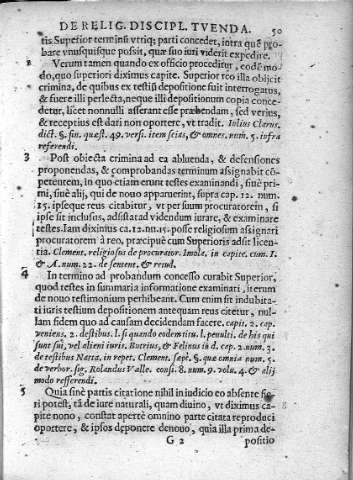 DE RELIG. DISCIPL. TVENDA. 50
tis Superior terminũ vtriq; parti concedet, intra quẽ pro-
bare vnusquisque possit, quæ suo iuri viderit expedire.
2 Verum tamen quando ex officio proceditur, codẽ mo-
do, quo superiori diximus capite. Superior reo illa obijcit
crimina, de quibus ex testiũ depositione fuit interrogatus,
& fuere illi perlecta, neque illi depositionum copia conce-
detur, licet nonnulli asserant esse præbendam, sed verius,
& receptius est dari non oportere, vt tradit. Iulius Clarus,
dict. §. fin. quæst. 49. versi. item scias, & omnes. num. 5. infra
referendi.
3 Post obiecta crimina ad ea abluenda, & defensiones
proponendas, & comprobandas terminum assignabit cõ-
petentem, in quo etiam erunt testes examinandi, siuè pri-
mi, siuè alij, qui de nouo apparuerint, supra cap. 12. num.
15. ipseque reus citabitur, vt per suum procuratorem, si
ipse sit inclusus, adsistat ad videndum iurare, & examinare
testes. Iam diximus ca. 12. nu. 15. posse religiosum assignari
procuratorem à reo, præcipuè cum Superioris adsit licen-
tia. Clement. religiosus de procurator. Imola. in capite. cum. I.
& A. num. 22. de sentent. & reiud.
4 In termino ad probandum concesso curabit Superior,
quod testes in summaria informatione examinati, iterum
de nouo testimonium perhibeant. Cum enim sit indubita-
ti iuris testium depositionem antequam reus citetur, nul-
lam fidem quo ad causam decidendam facere. capit. 2. cap.
veniens. 2. de testibus. l. si quando eodem titu. l. penulti. de his qui
sunt sui, vel alieni iuris. Butrius, & Felinus in d. cap. 2. num. 3.
de testibus Natta. in repet. Clement. sæpè. §. quæ omnia num. 5.
de verbor. sig. Rolandus Valle. consi. 8. num. 9. volu. 4. & alij
modo refferendi.
5 Quia sinè partis citatione nihil in iudicio eo absente fie-
ri potest, tã de iure naturali, quam diuino, vt diximus ca-
pite nono, constat apertè omnino parte citata reproduci
oportere, & ipsos deponere denouo, quia illa prima de-
G 2 positio